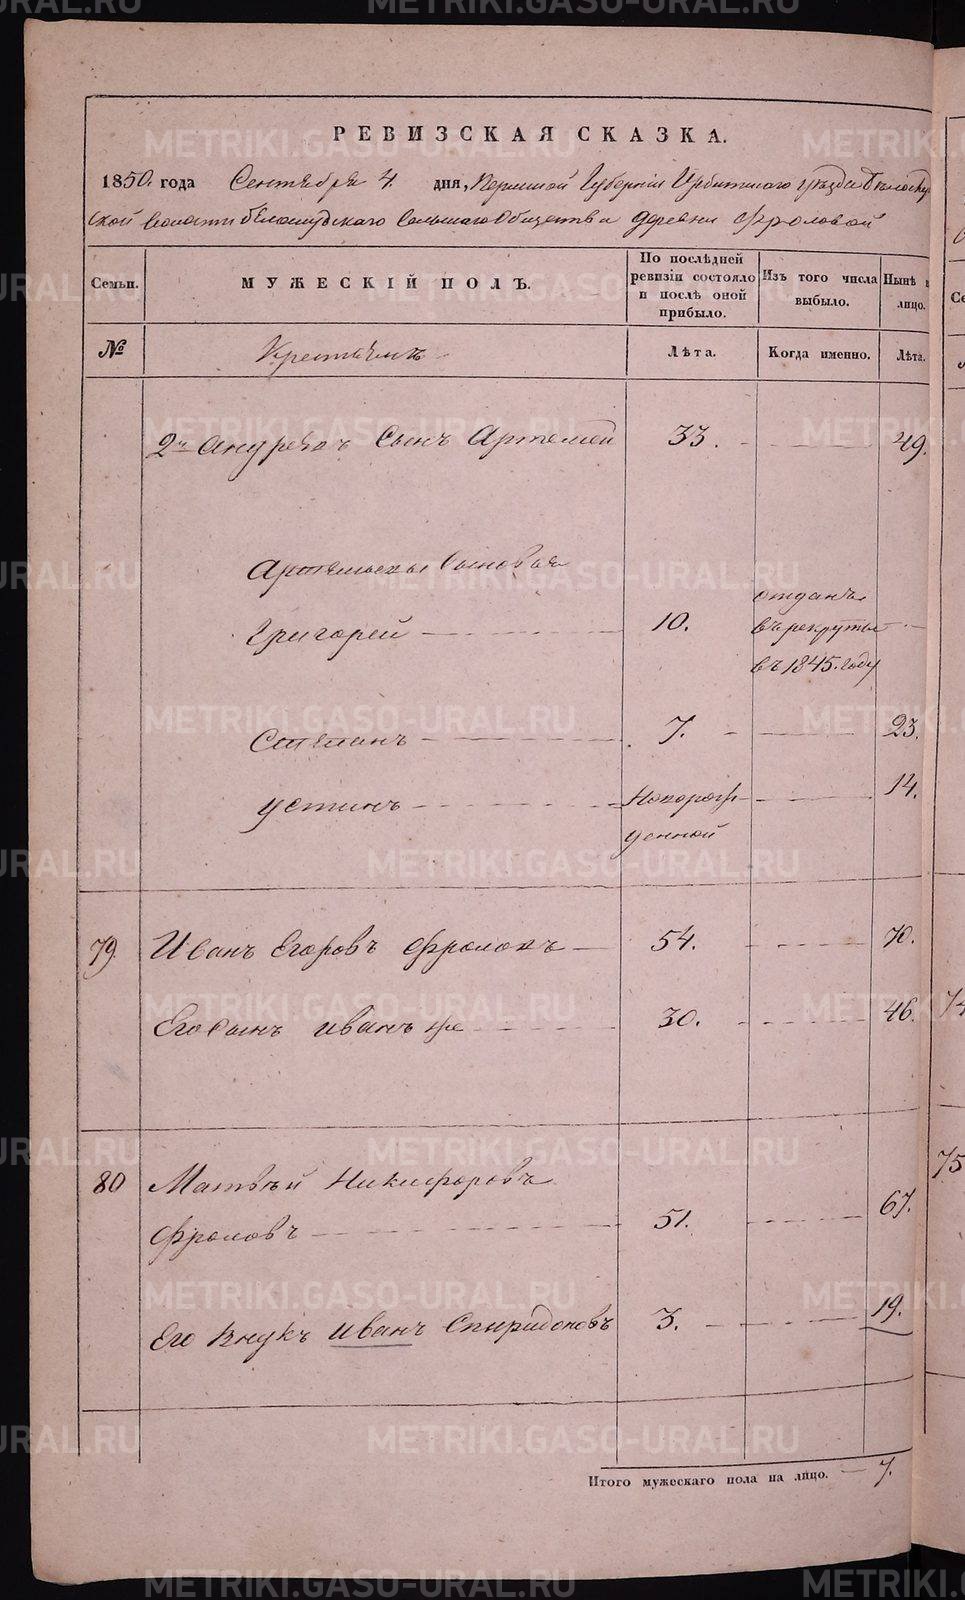 РЕВИЗСКАЯ СКАЗКА.
1850. года Сентября 4. дня, Пермской Губерніи Ирбитскаго Уѣзда Бѣлослуд
ской волости Бѣлослудскаго Сельскаго Общества деревни Фроловой
Семьи. МУЖЕСКІЙ ПОЛЪ. По послѣдней ревизіи состояло и послѣ оной прибыло. Изъ того числа выбыло. Нынѣ на лицо.
№ Крестьянъ Лѣта. Когда именно. Лѣта.
2й Андреевъ Сынъ Артемей 33. 49.
Артемьевы Сыновья
Григорей 10. отданъ въ рекруты въ 1845. году
Степанъ 7. 23.
Устинъ Новорож- 14.
денной
79 Иванъ Егоровъ Фроловъ 54. 70.
Его Сынъ Иванъ же 30. 46.
80 Матвѣй Никифоровъ
Фроловъ 51. 67.
Его внукъ Иванъ Спиридоновъ 3. 19.
Итого мужескаго пола на лицо. 7.
74
75
METRIKI.GASO-URAL.RU